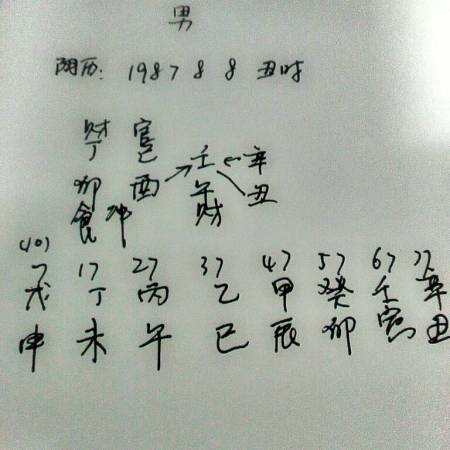 男
阴历: 1987 8 8 丑时
财 官
丁 己 壬 辛
卯 酉 午 丑
食 冲 财
7 17 27 37 47 57 67 77
戊 丁 丙 乙 甲 癸 壬 辛
申 未 午 巳 辰 卯 寅 丑